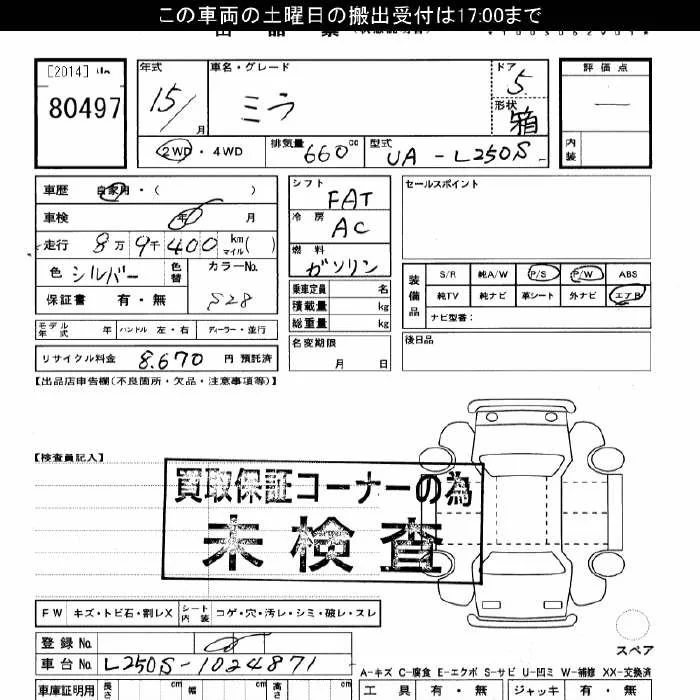 この車両の土曜日の搬出受付は17:00まで
[2014]
80497
年式
15/
月
車名・グレード
ミラ
ドア
5
形状
箱
評価点
—
内装
2WD・4WD
排気量 660 cc
型式 UA-L250S
車歴 自家用・( )
車検 年 月
走行 8万9千400 km マイル( )
色 シルバー 色替
カラーNo. S28
保証書 有・無
シフト FAT
冷房 AC
燃料 ガソリン
乗車定員 名
積載量 kg
総重量 kg
名変期限
月 日
セールスポイント
装備品
S/R 純A/W P/S P/W ABS
純TV 純ナビ 革シート 外ナビ エアB
ナビ型番:
後日品
モデル年式 年 ハンドル 左・右 ディーラー・並行
リサイクル料金 8,670 円 預託済
【出品店申告欄(不良箇所・欠品・注意事項等)】
【検査員記入】
買取保証コーナーの為
未検査
FW キズ・トビ石・割レX シート内装 コゲ・穴・汚レ・シミ・破レ・スレ
登録No.
車台No. L250S-1024871
スペア
A-キズ C-腐食 E-エクボ S-サビ U-凹ミ W-補修 XX-交換済
車庫証明用 長さ cm 幅 cm 高さ cm
工具 有・無 ジャッキ 有・無